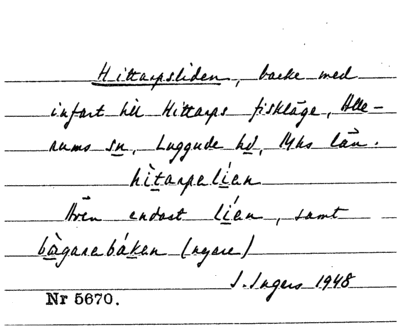 Hittarpsliden, backe med
infart till Hittarps fiskläge, Alle-
rums sn, Luggude hd, Mhs län.
hìtarpelíen
Även endast líen, samt
bàgarebáken (nyare)
I. Ingers 1948
Nr 5670.